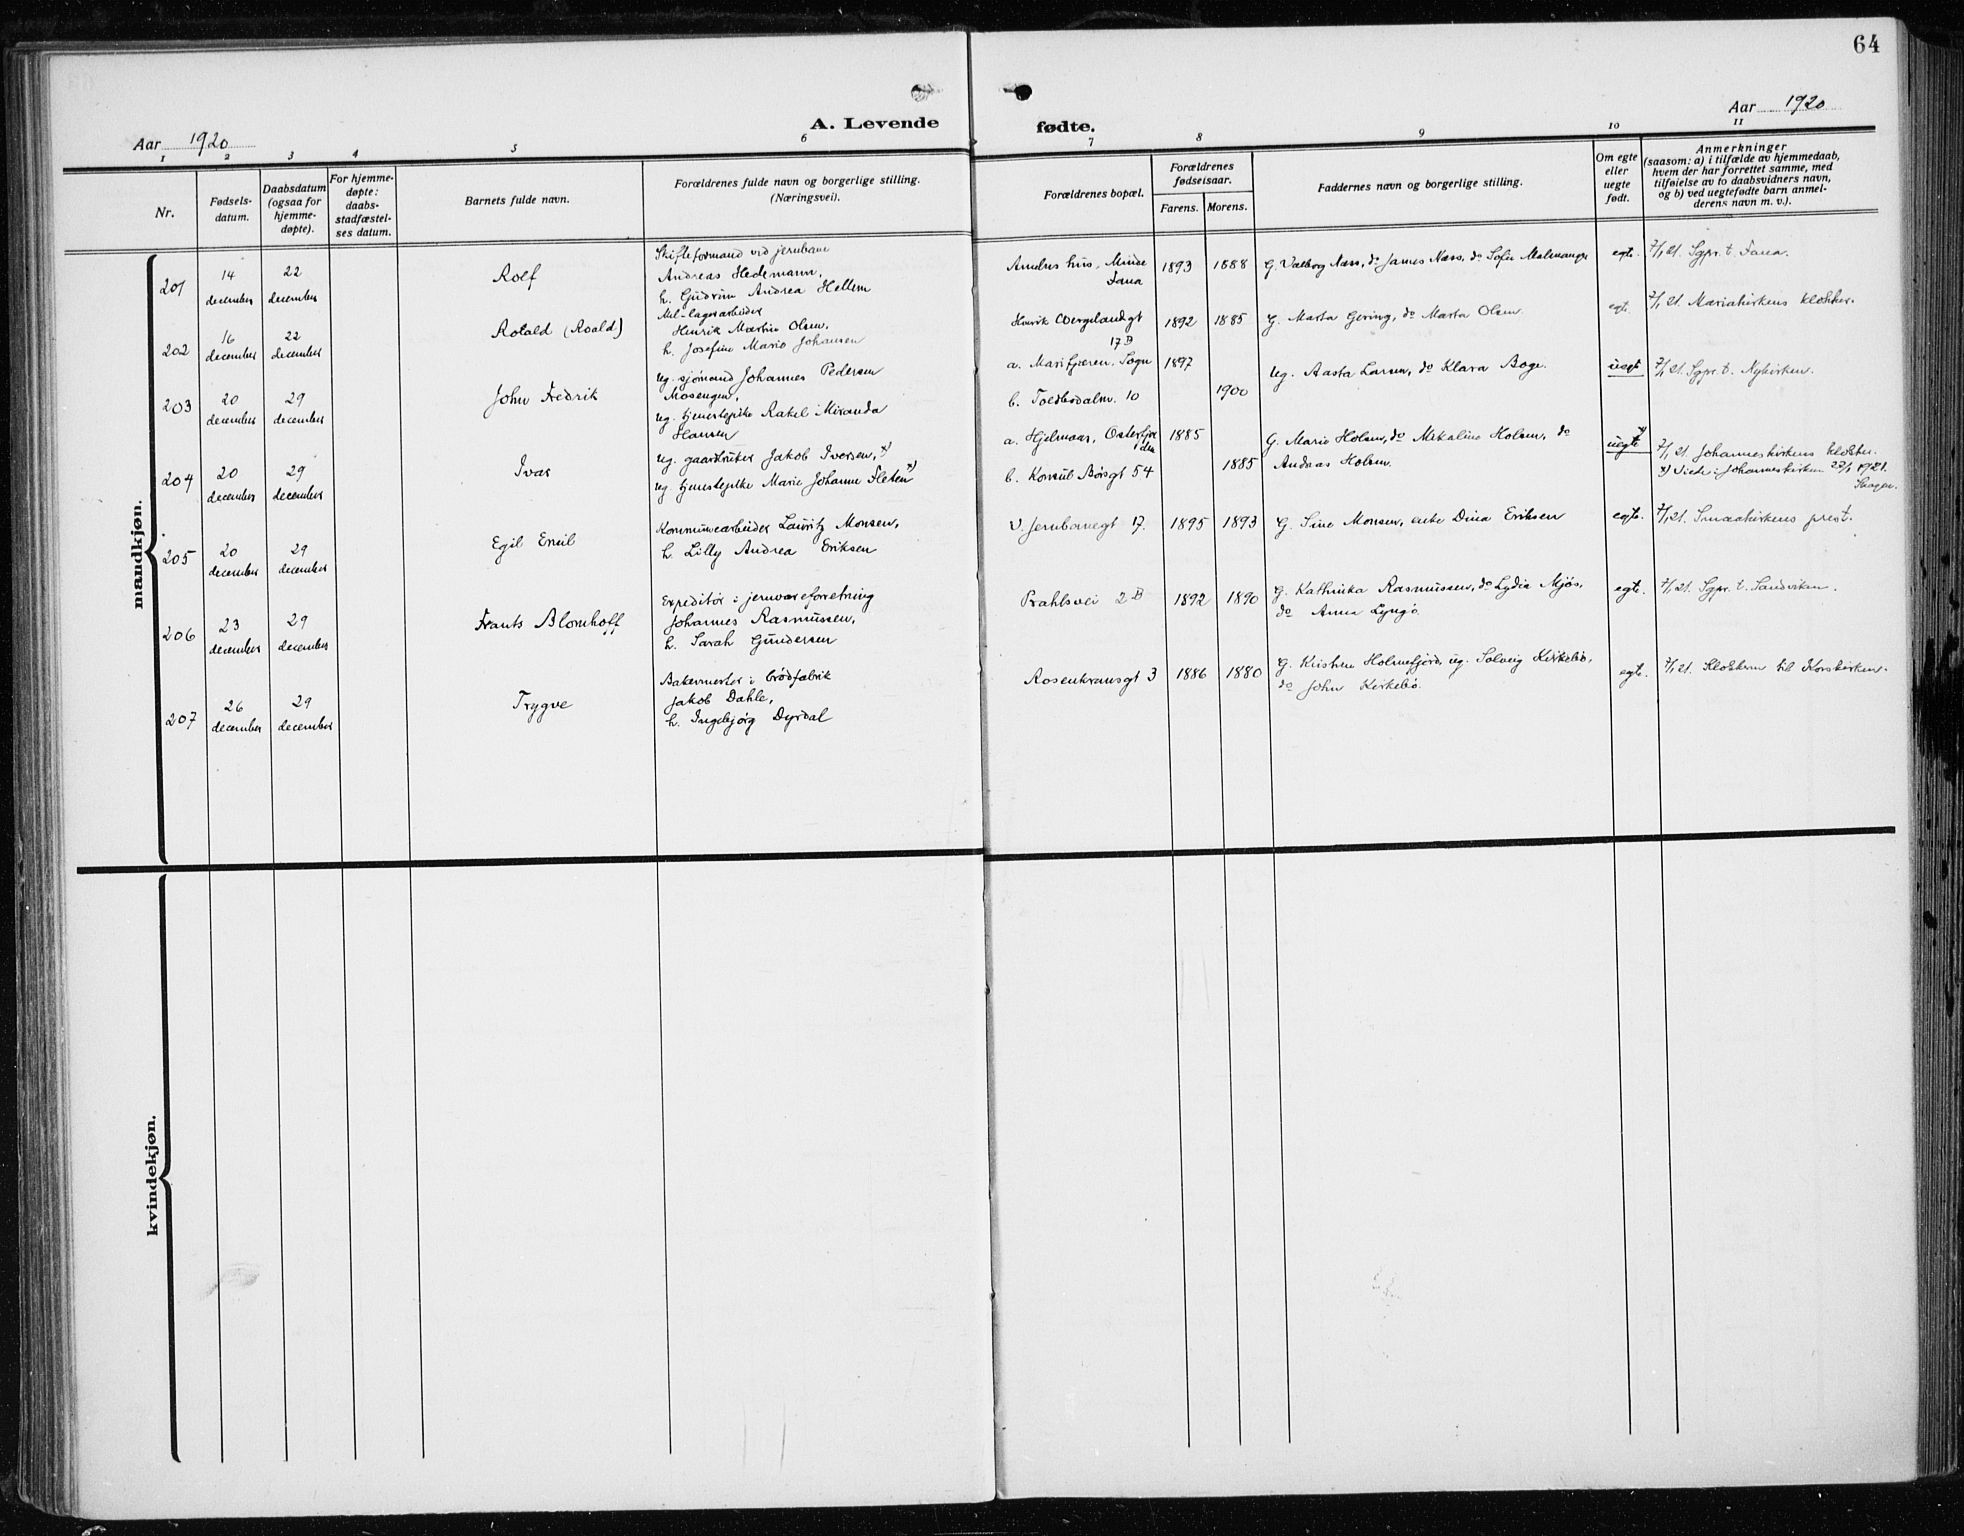 64
Aar 1920
A. Levende
fødte.
Aar 1920
1 2 3 4 5 6 7 8 9 10 11
Nr.
Fødsels-
datum.
Daabsdatum
(ogsaa for
hjemme-
døpte).
For hjemme-
døpte:
daabs-
stadfæstel-
ses datum.
Barnets fulde navn.
Forældrenes fulde navn og borgerlige stilling.
(Næringsvei).
Forældrenes bopæl.
Forældrenes
fødselsaar.
Farens. Morens.
Faddernes navn og borgerlige stilling.
Om egte
eller
uegte
født.
Anmerkninger
(saasom: a) i tilfælde av hjemmedaab,
hvem der har forrettet samme, med
tilføielse av to daabsvidners navn,
og b) ved uegtefødte barn anmel-
derens navn m. v.).
mandkjøn.
201
14
december
22
december
Rolf
Skifteformand ved jernbane
Andreas Hedemann,
h. Gudrun Andrea Hellem
Andres hus, Minde
Fana
1893 1888
G. Valborg Næss, do James Næss, do Sofie Malmanger
egte.
7/1 21. Sgpr. t. Fana.
202
16
december
22
december
Rotald (Roald)
Mel-lagerarbeider
Henrik Martin Olsen,
h. Josefine Marie Johansen
Henrik Wergelandgt
17 B
1892 1885
G. Marta Gering, do Marta Olsen
egte.
7/1 21. Mariakirkens klokker.
203
20
december
29
december
John Fredrik
Ug. sjømand Johannes Pedersen
Mosengen,
ug. tjenestepike Rakel Miranda
Hansen
a. Marifjæren, Sogn
b. Toldbodalm. 10
1897
1900
Ug. Aasta Larsen, do Klara Boge.
uegt
7/1 21. Sgpr. t. Nykirken.
204
20
december
29
december
Ivar
Ug. gaardbruker Jakob Iversen, x)
ug. tjenestepike Marie Johanne Fleten x)
a. Hjelmaas, Osterfjor
den
b. Konsul Børsgt 54
1885
1885
G. Marie Holsen, do Mikaline Holsen, do
Andreas Holsen.
uegte x)
7/1 21. Johanneskirkens klokker.
x) Viede i Johanneskirken 22/1 1921.
205
20
december
29
december
Egil Emil
Kommunearbeider Lauritz Monsen,
h. Lilly Andrea Eriksen
V. Jernbanegt 17.
1895 1893
G. Sine Monsen, enke Dina Eriksen
egte.
7/1 21. Smaakirkens prest.
206
23
december
29
december
Frants Blomhoff
Expeditør i jernvareforretning
Johannes Rasmussen,
h. Sarah Gundersen
Prahlsvei 2 B
1892 1890
G. Kathinka Rasmussen, do Lydia Mjøs,
do Anna Lyngø
egte.
7/1 21. Sgpr. t. Sandviken.
207
26
december
29
december
Trygve
Bakermester i brødfabrik
Jakob Dahle,
h. Ingebjørg Dyrdal
Rosenkransgt 3
1886 1880
G. Kristen Holmefjord, ug. Solveig Kirkebø,
do John Kirkebø.
egte.
7/1 21. Klokkeren til Korskirken.
kvindekjøn.